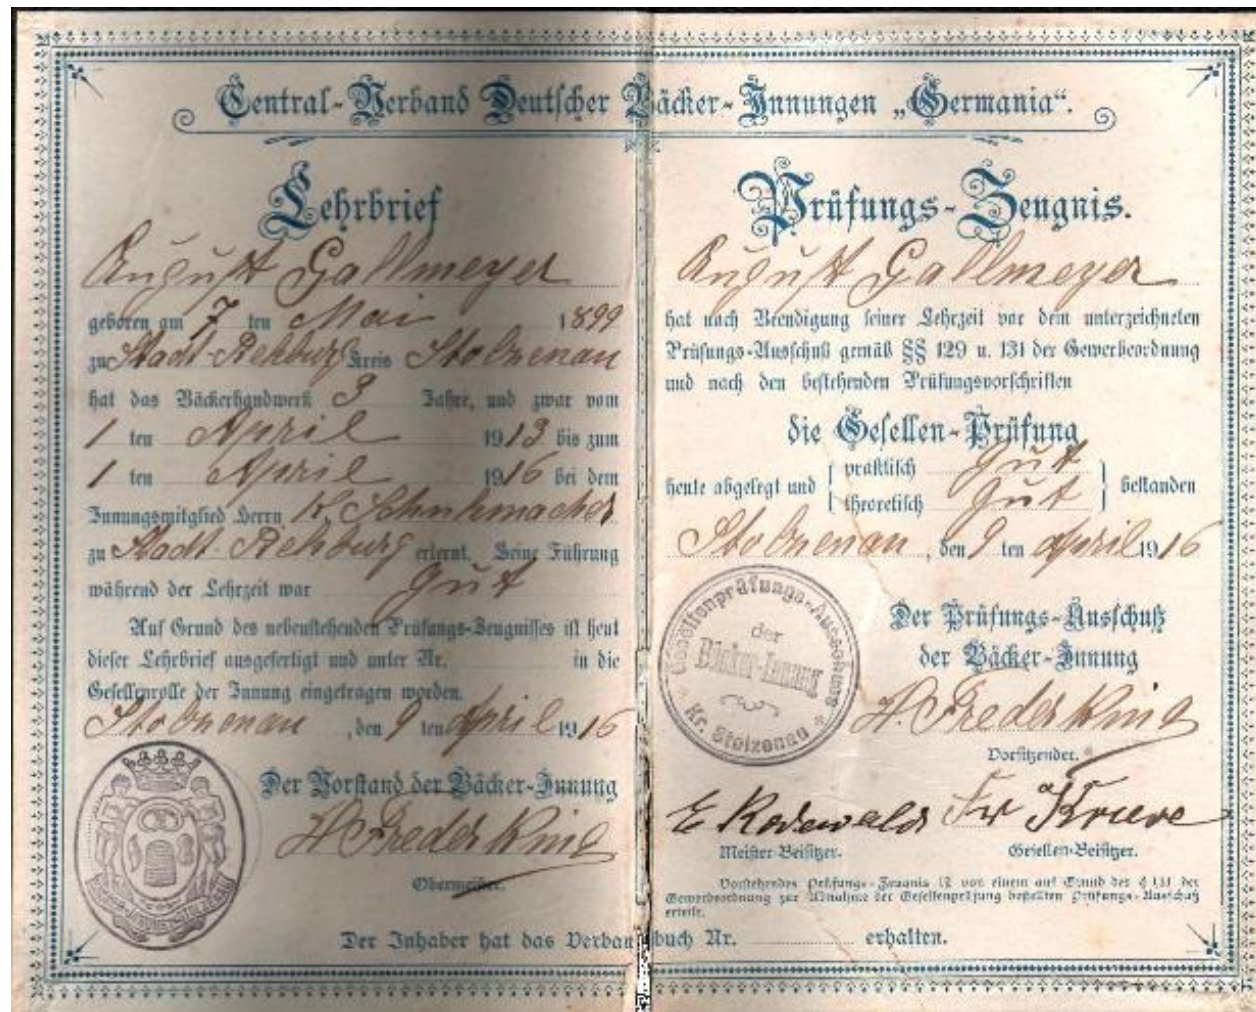 Central-Verband Deutscher Bäcker-Innungen „Germania“.
Lehrbrief
August Gallmeyer
geboren am 7 ten Mai 1899
zu Stadt Rehburg Kreis Stolzenau
hat das Bäckerhandwerk 3 Jahre, und zwar vom
1 ten April 1913 bis zum
1 ten April 1916 bei dem
Innungsmitglied Herrn Schuhmacher
zu Stadt Rehburg erlernt. Seine Führung
während der Lehrzeit war gut
Auf Grund des nebenstehenden Prüfungs-Zeugnisses ist heut
dieser Lehrbrief ausgefertigt und unter Nr. in die
Gesellenrolle der Innung eingetragen worden.
Stolzenau, den 9 ten April 1916
Der Vorstand der Bäcker-Innung
H. Frederking
Obermeister.
Prüfungs-Zeugnis.
August Gallmeyer
hat nach Beendigung seiner Lehrzeit vor dem unterzeichneten
Prüfungs-Ausschuß gemäß §§ 129 u. 131 der Gewerbeordnung
und nach den bestehenden Prüfungsvorschriften
die Gesellen-Prüfung
heute abgelegt und { praktisch gut
theoretisch gut } bestanden
Stolzenau, den 9 ten April 1916
Gesellenprüfungs-Ausschuss
der
Bäcker-Innung
Kr. Stolzenau
Der Prüfungs-Ausschuß
der Bäcker-Innung
H. Frederking
Vorsitzender.
E Rodewald Fr Kruse
Meister-Beisitzer. Gesellen-Beisitzer.
Vorstehendes Prüfungs-Zeugnis ist von einem auf Grund des § 131 der
Gewerbeordnung zur Abnahme der Gesellenprüfung bestellten Prüfungs-Ausschuß
erteilt.
Der Inhaber hat das Verbandsbuch Nr. erhalten.